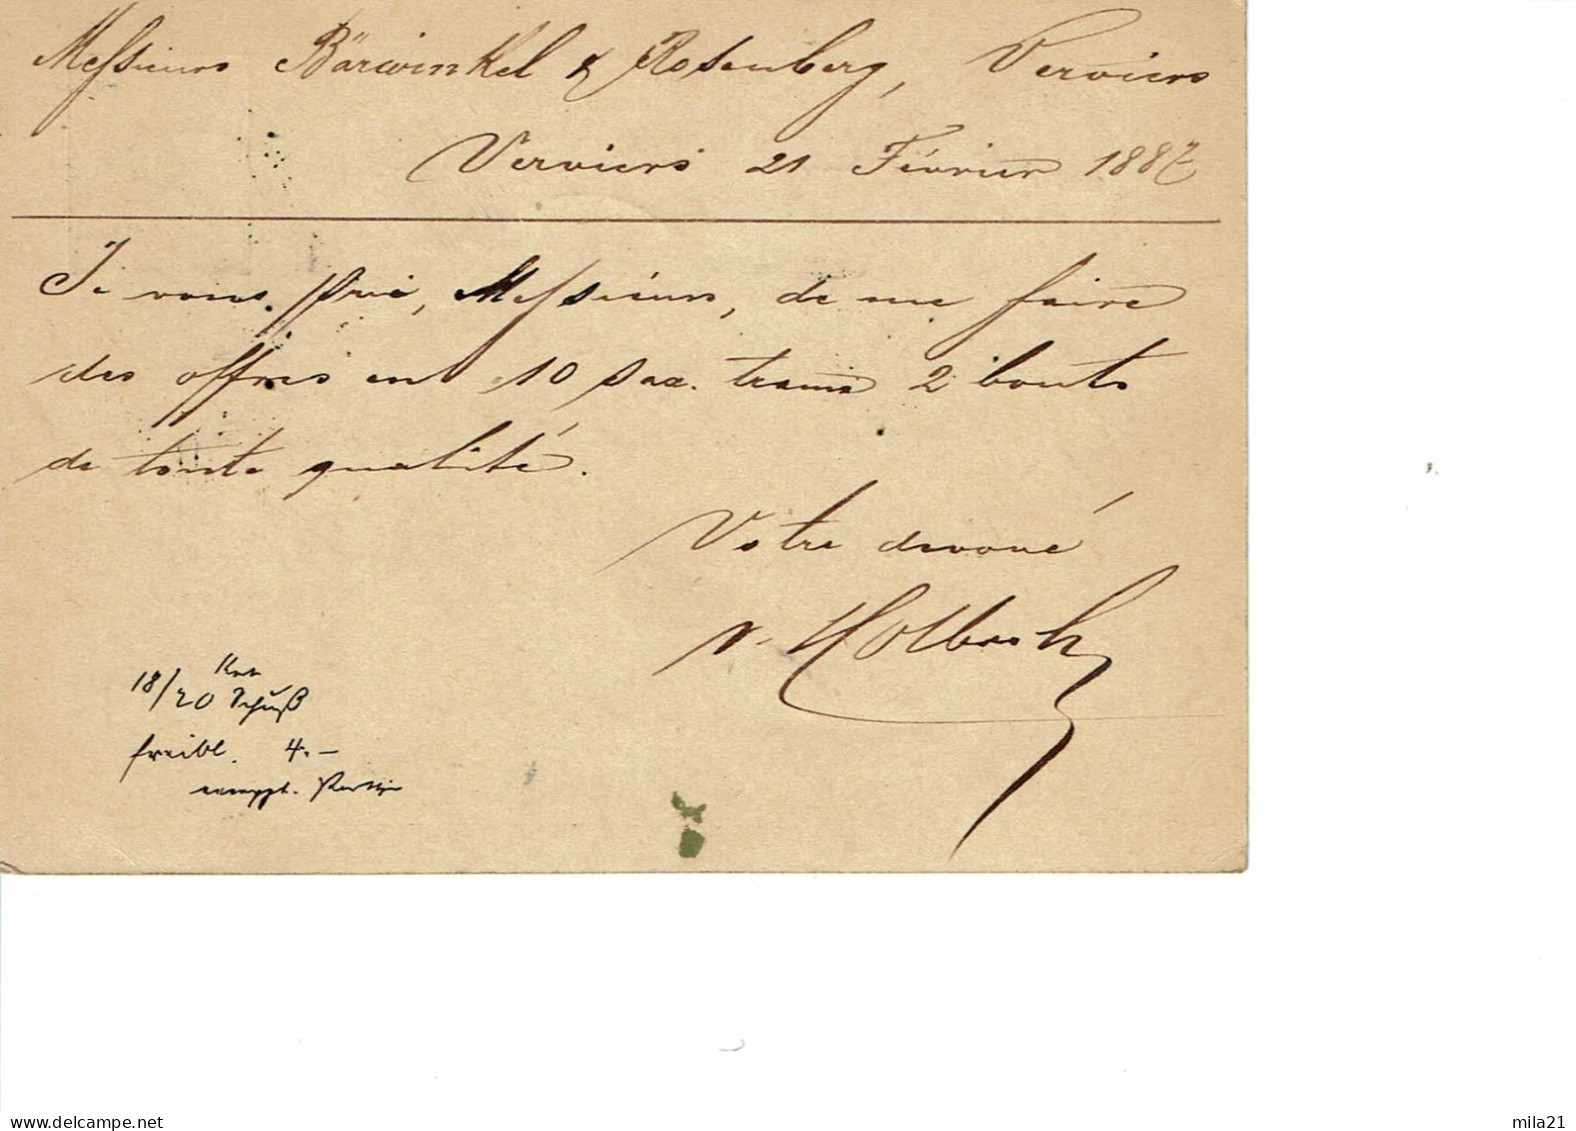 Messieurs Bärwinkel & Rosenberg, Verviers
Verviers 21 Février 1887
Je vous prie, Messieurs, de me faire
des offres en 10 sax. trame 2 bouts
de toute qualité.
Votre devoué
v. Hollbach
18/20 Schuß
freibl. 4.–
www.delcampe.net
mila21